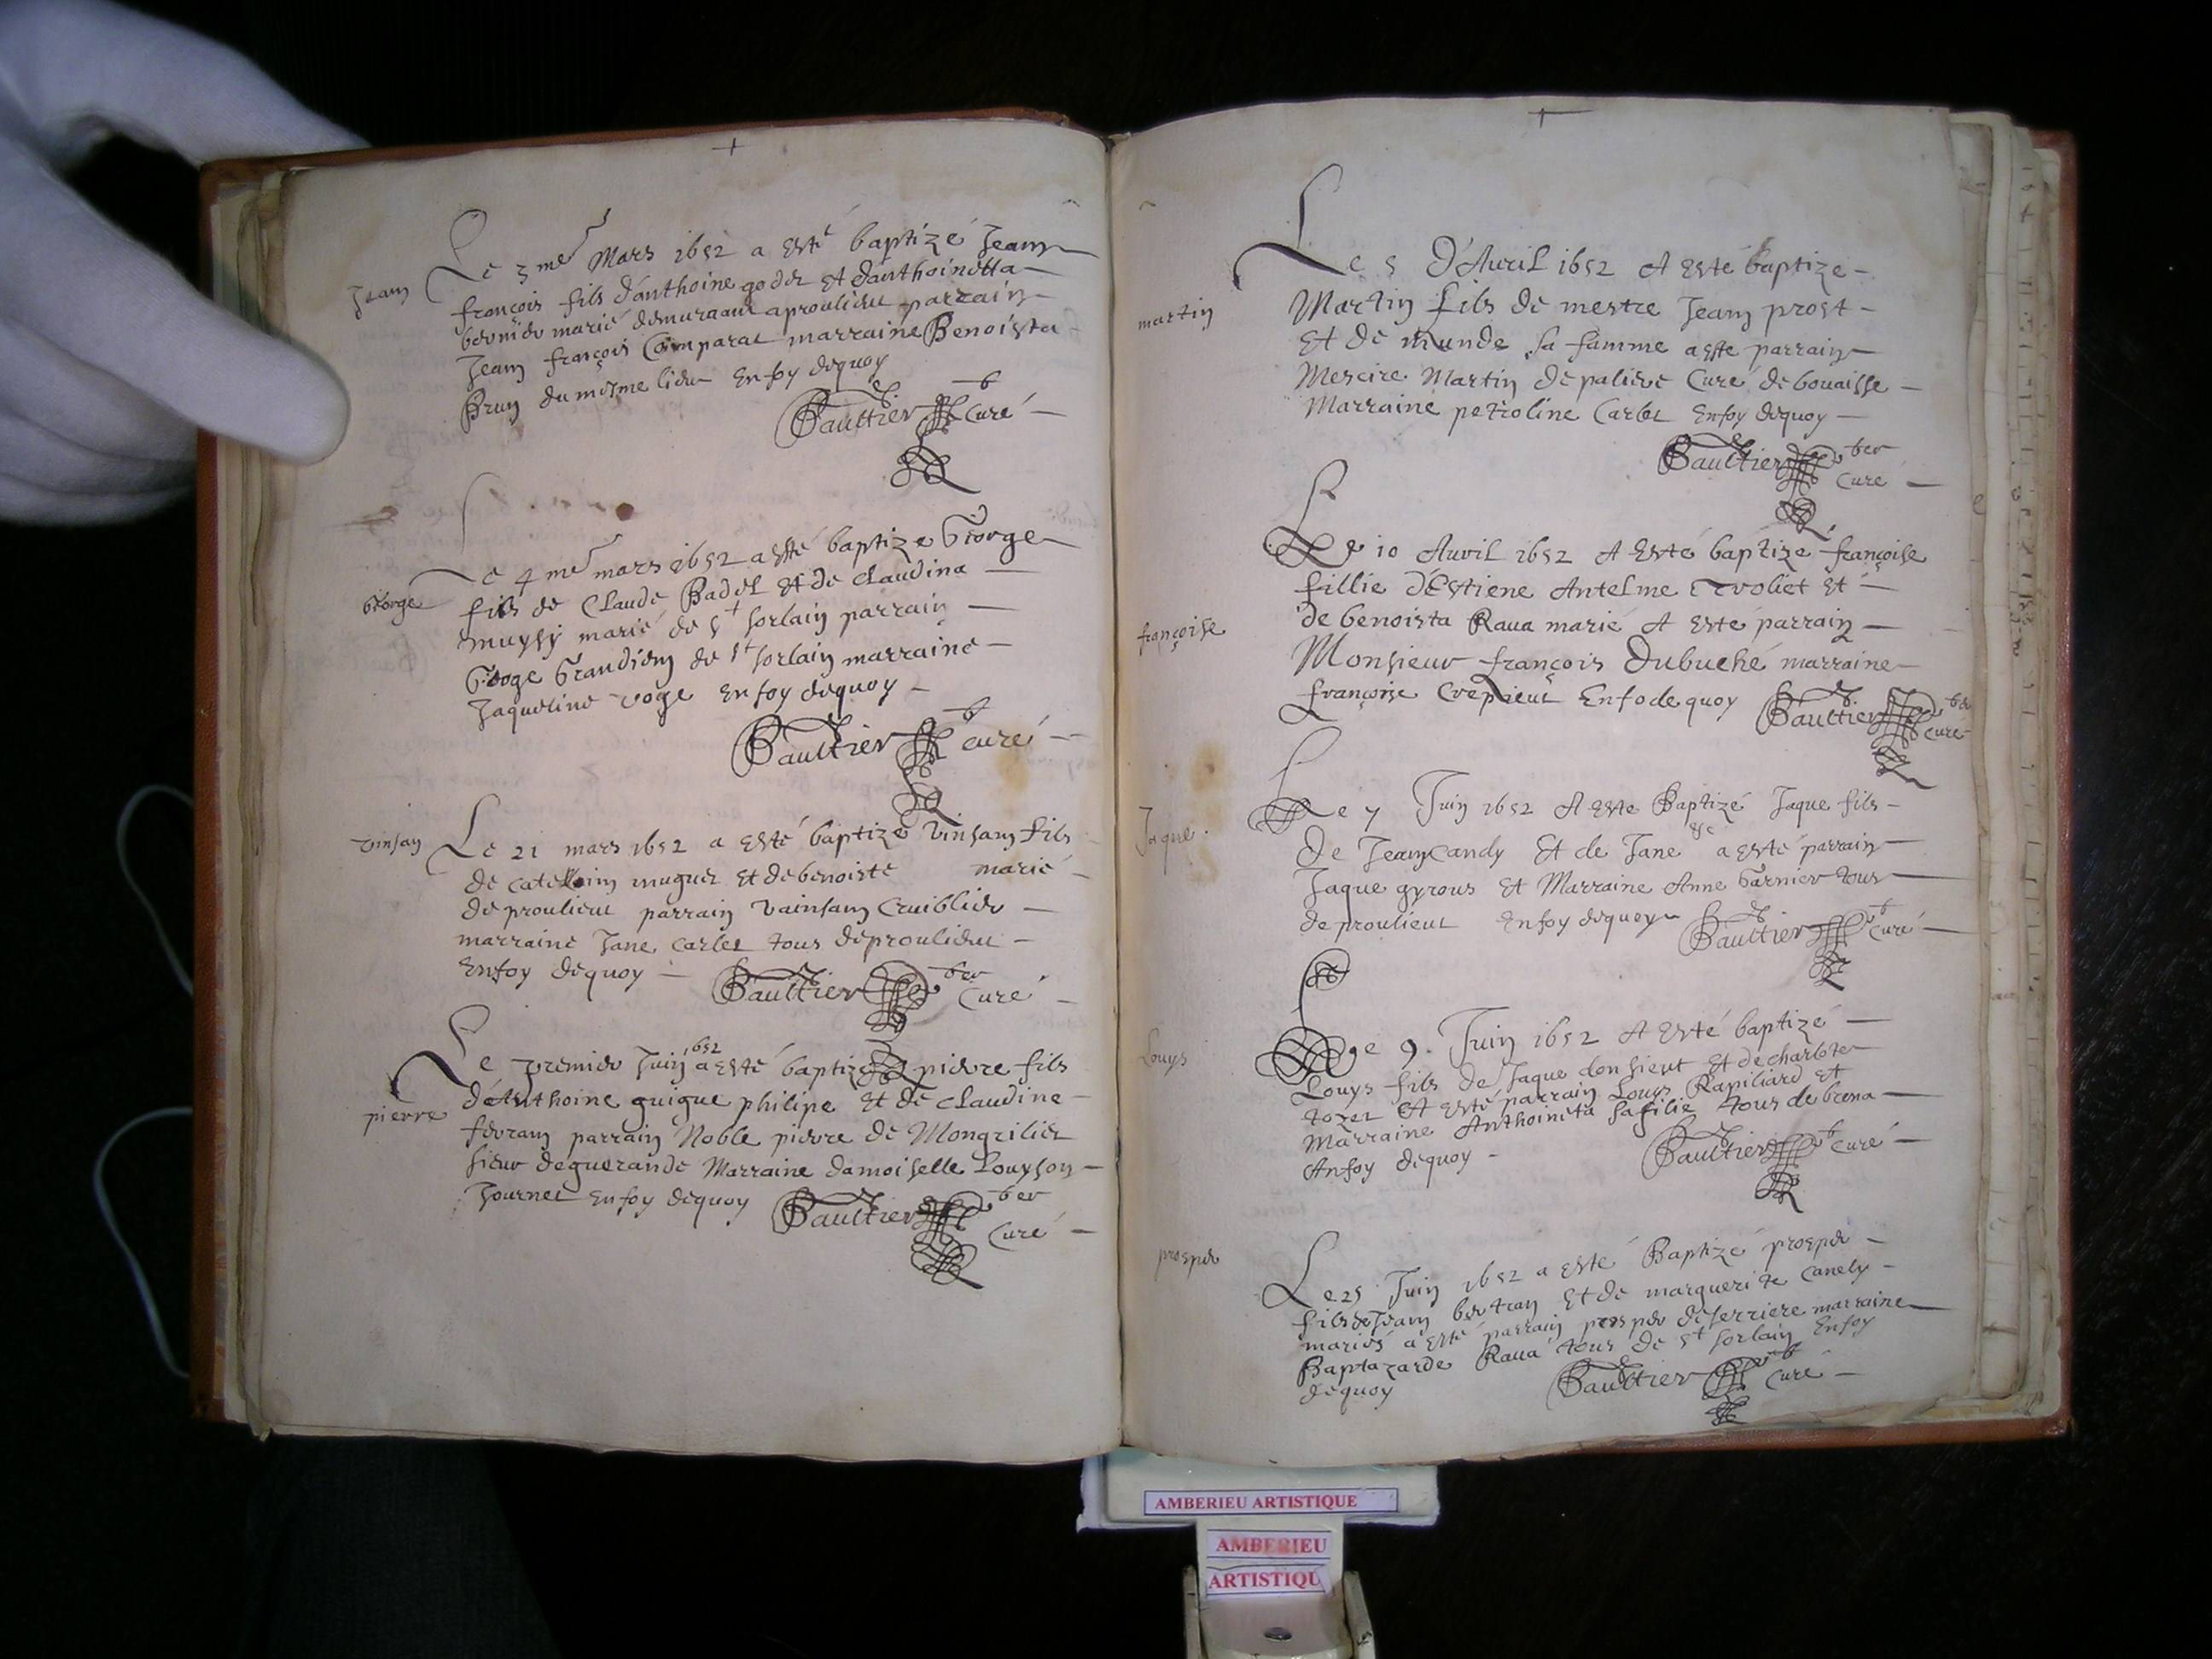 +
Jean
Le 3me Mars 1652 a esté baptizé Jean
françois fils d'anthoine godet et d'anthoinetta
bernier marié demurant a proulieu parrain
Jean françois Comparat marraine Benoista
Brun du mesme lieu En foy dequoy
Gaultier pb Curé
George
Le 4me mars 1652 a esté baptize George
fils de Claude Badel et de claudina
muysy marié de st sorlain parrain
George Grandien de st sorlain marraine
Jaqueline voge En foy dequoy
Gaultier pb curé
vinsan
Le 21 mars 1652 a esté baptizé vinsan fils
de catelin muguet et de benoiste marié
de proulieut parrain vainsam Cruiblier
marraine Jane carlet tous de proulieu
En foy dequoy Gaultier pber Curé
pierre
1652
Le premier Juin a esté baptizé pierre fils
d'Anthoine guigue philipe et de claudine
feuram parrain Noble pierre de Mongrilier
sieur de guerande Marraine damoiselle Louyson
Journet En foy dequoy Gaultier pber
Curé
+
martin
Le 5 d'Auril 1652 A esté baptize
Martin fils de mestre Jean prost
Et de munde sa famme a este parrain
Mescire Martin de paliere Curé de bouaisse
Marraine petroline Carlet En foy dequoy
Gaultier pber
Curé
françoise
Le 10 Auvril 1652 A Esté baptizé françoise
fillie d'Estiene Antelme trvoliet et
de benoista Raua marié A esté parrain
Monsieur françois Dubuché marraine
françoise Crepieut En fo de quoy Gaultier pber
Curé
Jaque
Le 7 Juin 1652 A este Baptizé Jaque fils
De Jean Candy Et de Jane &c a esté parrain
Jaque gyrous et Marraine Anne Garnier tous
de proulieut En foy dequoy Gaultier pb Curé
Louys
Le 9. Juin 1652 A Esté baptizé
Louys fils de Jaque donsieut Et de charlote
tozet A esté parrain Louys Rapiliard et
Marraine Anthoineta sa filie tous de brena
An foy dequoy Gaultier pb Curé
prosper
Le 25 Juin 1652 a esté Baptizé prosper
fils de Jean bertran Et de marguerite Canely
mariés a esté parrain prosper de serriere marraine
Baptazarde Raua tous de st sorlain En foy
dequoy Gaultier pb Curé
AMBERIEU ARTISTIQUE
AMBERIEU
ARTISTIQU